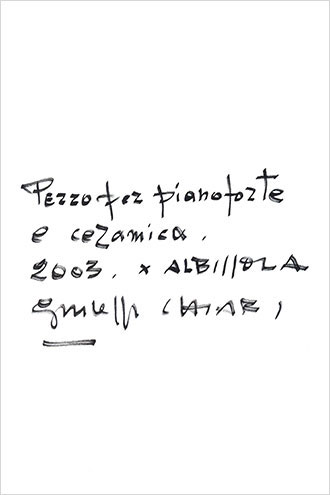 Pezzo per pianoforte
e ceramica.
2003. x ALBISSOLA
Giuseppe CHIARI